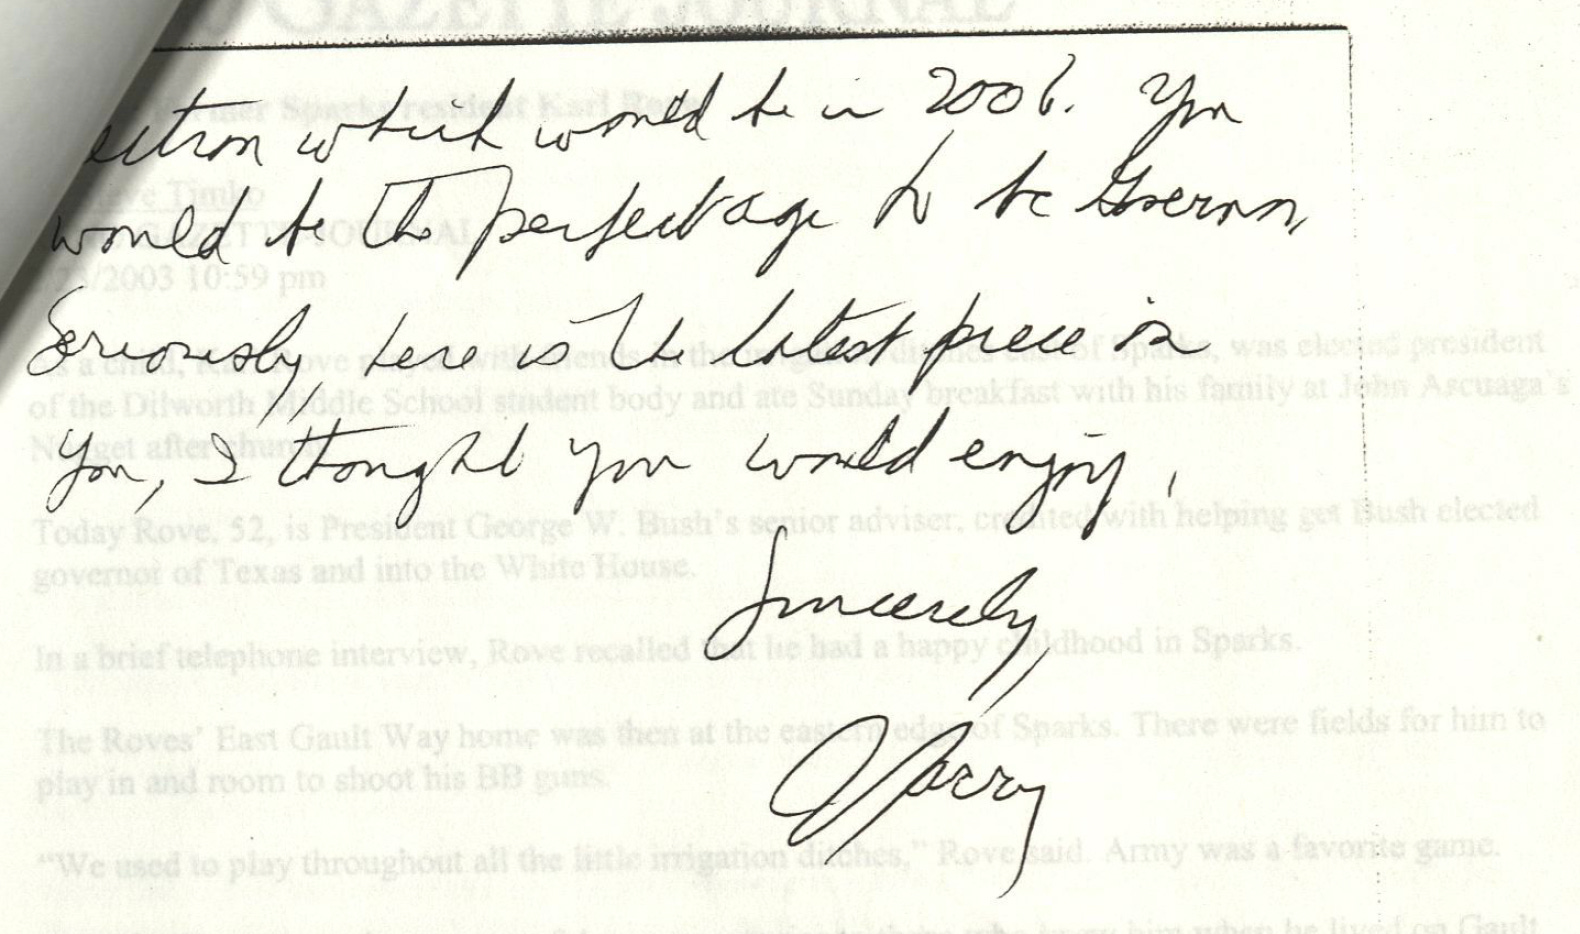 GAZETTE JOURNAL
Former Sparks resident Karl Rove
ection which would be in 2006. You
Steve Timko
would be the perfect age to be Governor,
GAZETTE-JOURNAL
/23/2003 10:59 pm
Seriously, here is the latest piece on
As a child, Karl Rove played with friends in the irrigation ditches east of Sparks, was elected president
of the Dilworth Middle School student body and ate Sunday breakfast with his family at John Ascuaga's
Nugget after church.
You, I thought you would enjoy,
Today Rove, 52, is President George W. Bush's senior adviser, credited with helping get Bush elected
governor of Texas and into the White House.
Sincerely,
In a brief telephone interview, Rove recalled that he had a happy childhood in Sparks.
The Roves' East Gault Way home was then at the eastern edge of Sparks. There were fields for him to
play in and room to shoot his BB guns.
"We used to play throughout all the little irrigation ditches," Rove said. Army was a favorite game.
him when he lived on Gault